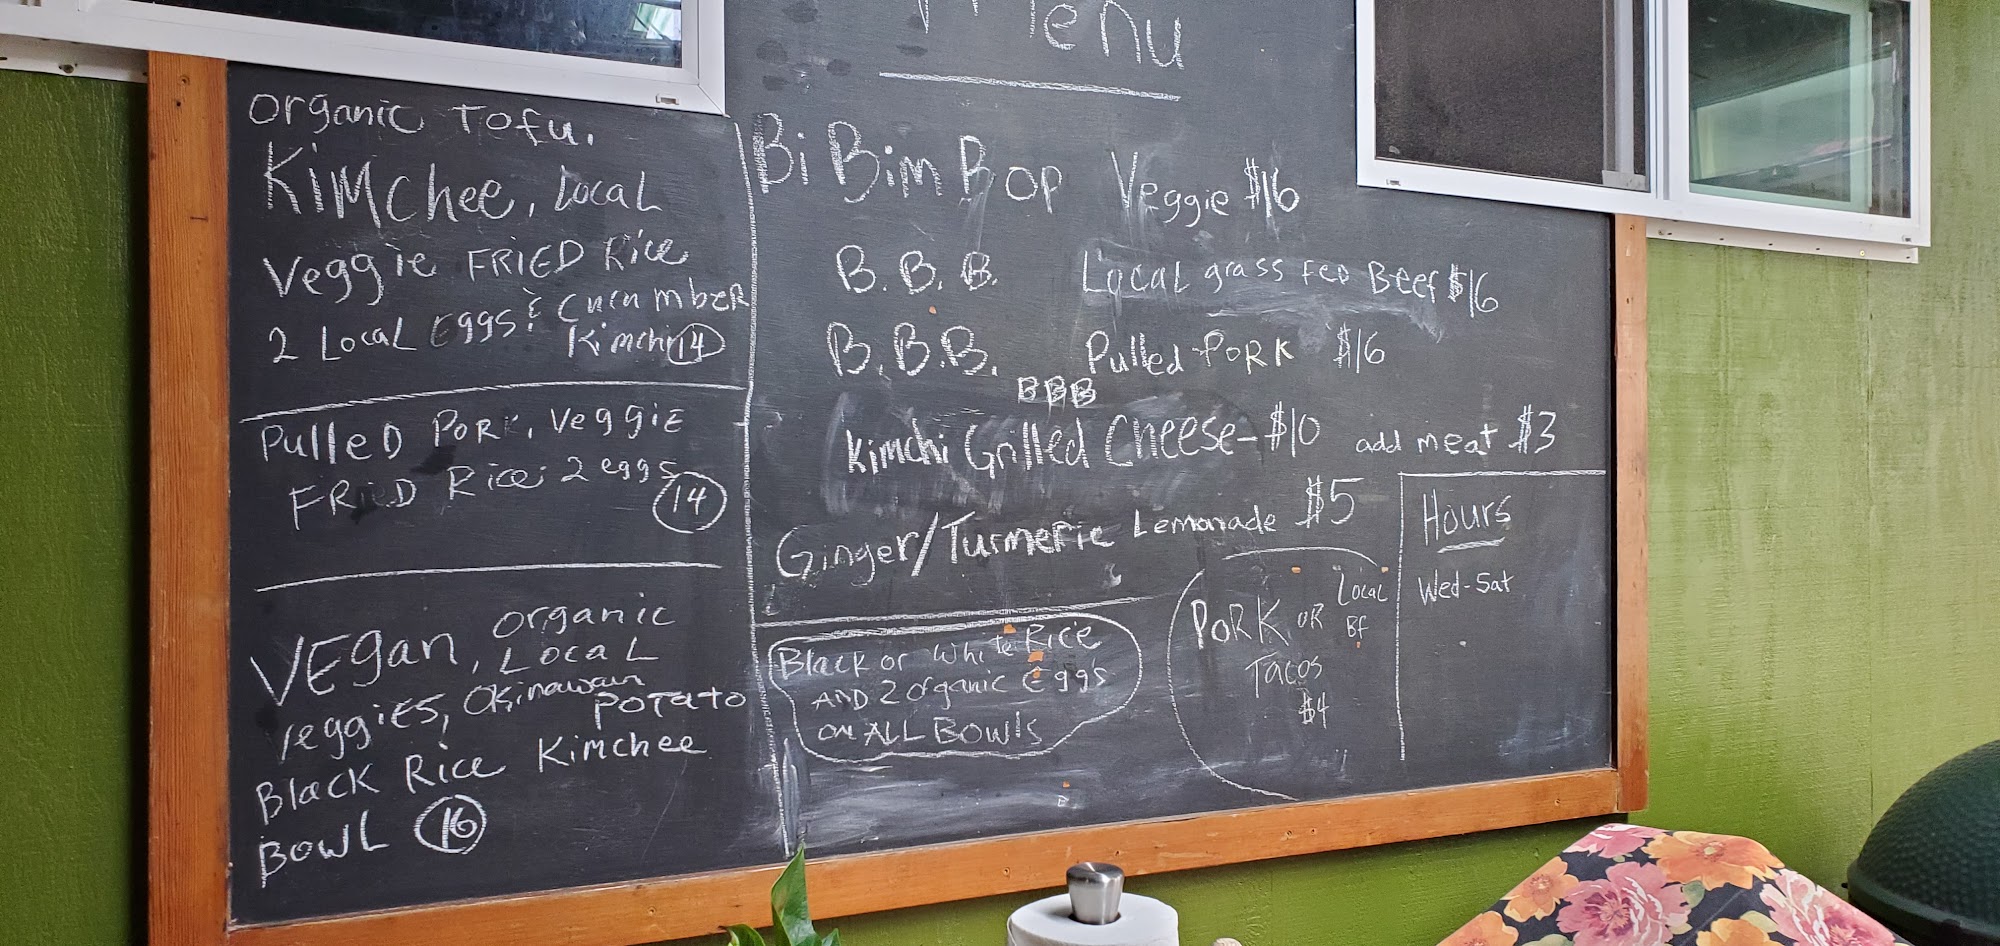 Menu
Organic Tofu.
Kimchee, Local
Veggie FRIED Rice
2 Local Eggs & Cucumber
Kimchi 14
Pulled Pork, Veggie
FRIED Rice; 2 eggs
14
VEgan, organic
Local
veggiES, Okinawain
Potato
Black Rice Kimchee
Bowl 16
Bi Bim Bop Veggie $16
B.B.B. Local grass FED Beef $16
B.B.B. Pulled-PORK $16
BBB
Kimchi Grilled Cheese-$10 add meat $3
Ginger/Turmeric Lemonade $5
Black or White Rice
AND 2 organic Eggs
on ALL BOWLS
PORK OR Local
BF
Tacos
$4
Hours
Wed-Sat